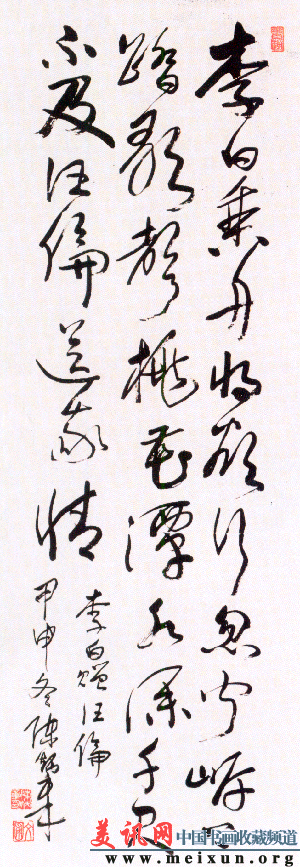 李白乘舟将欲行忽闻岸上
踏歌聲桃花潭水深千尺
不及汪倫送我情
李白赠汪倫
甲申冬陳
美讯网 中国书画收藏频道
www.meixun.org